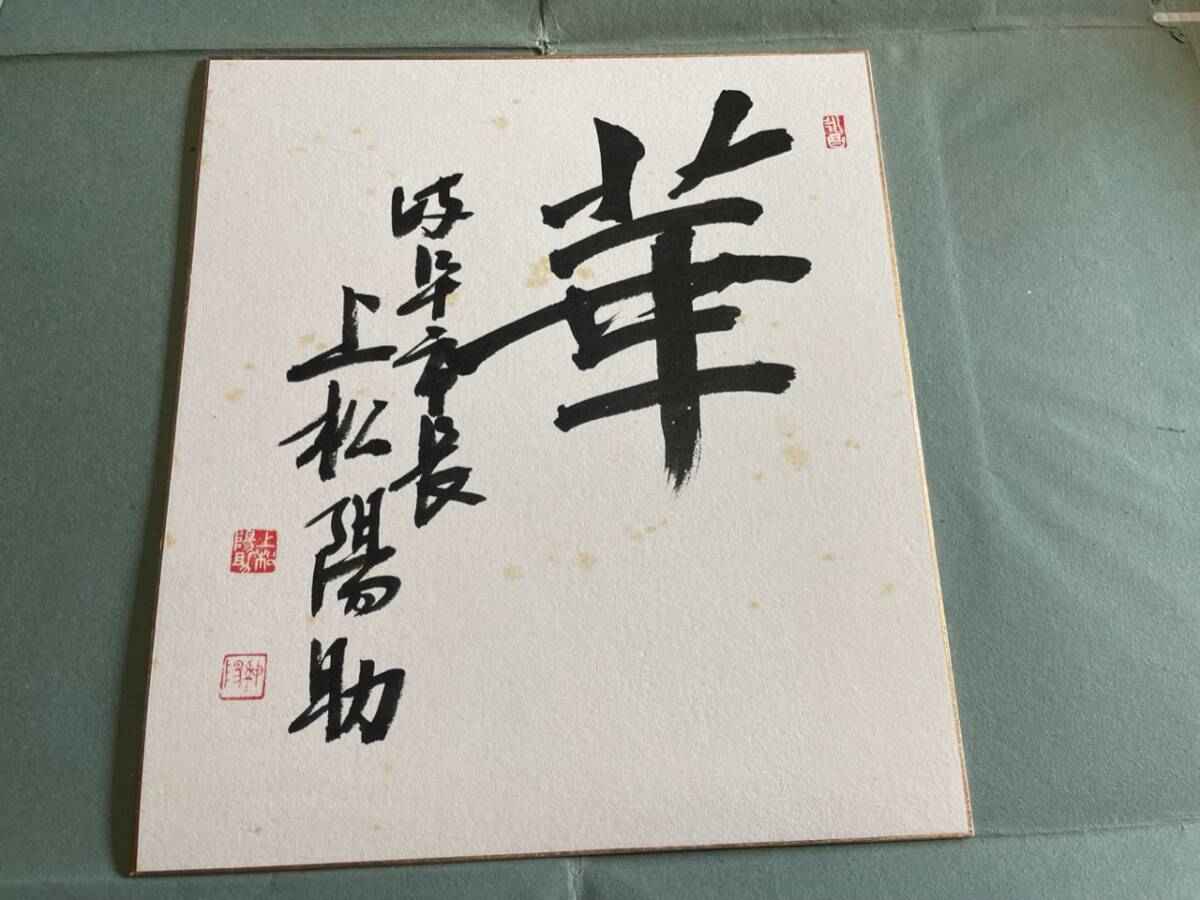 華
岐阜市長
上松陽助
上松
陽助